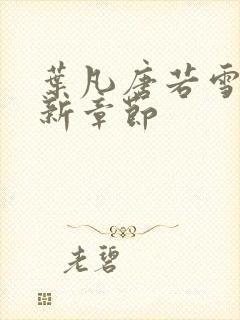 葉凡唐若雪
新章節
老碧